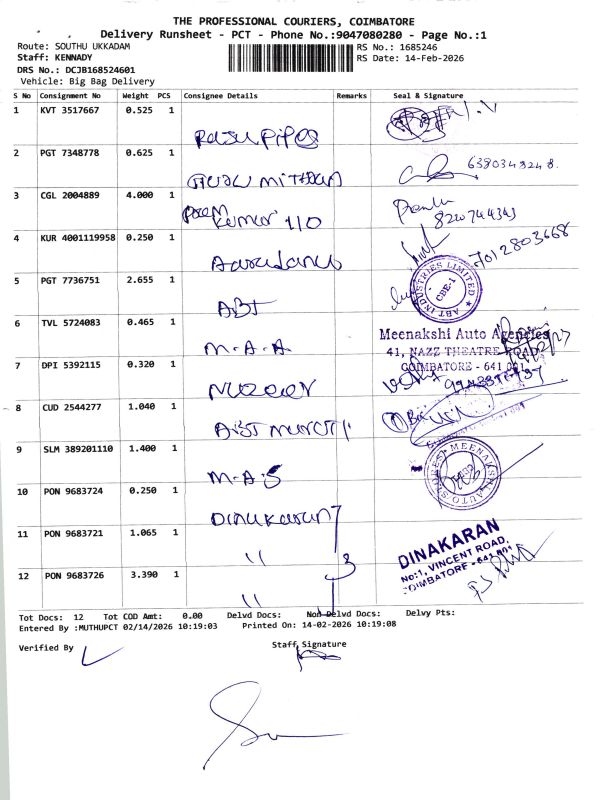 THE PROFESSIONAL COURIERS, COIMBATORE
Delivery Runsheet - PCT - Phone No.:9047080280 - Page No.:1
Route: SOUTHU UKKADAM
Staff: KENNADY
RS No.: 1685246
RS Date: 14-Feb-2026
DRS No.: DCJB168524601
Vehicle: Big Bag Delivery
S No Consignment No Weight PCS Consignee Details Remarks Seal & Signature
1 KVT 3517667 0.525 1
2 PGT 7348778 0.625 1
6380343248.
3 CGL 2004889 4.000 1 Prem Kumar 110
4 KUR 4001119958 0.250 1
7012803668
5 PGT 7736751 2.655 1 ABT
ABT INDUSTRIES LIMITED CBE-1
6 TVL 5724083 0.465 1 M-A-A
Meenakshi Auto Agencies
41, NAZZ THEATRE ROAD
COIMBATORE - 641 001
7 DPI 5392115 0.320 1
8 CUD 2544277 1.040 1 ABT Maruti
9 SLM 389201110 1.400 1 M-A-S
MEENAKSHI AUTO STORES
10 PON 9683724 0.250 1 Dinakaran
11 PON 9683721 1.065 1 "
3
DINAKARAN
No:1, VINCENT ROAD,
COIMBATORE - 641 001
12 PON 9683726 3.390 1 "
Tot Docs: 12 Tot COD Amt: 0.00 Delvd Docs: Non-Delvd Docs: Delvy Pts:
Entered By :MUTHUPCT 02/14/2026 10:19:03 Printed On: 14-02-2026 10:19:08
Verified By
Staff Signature